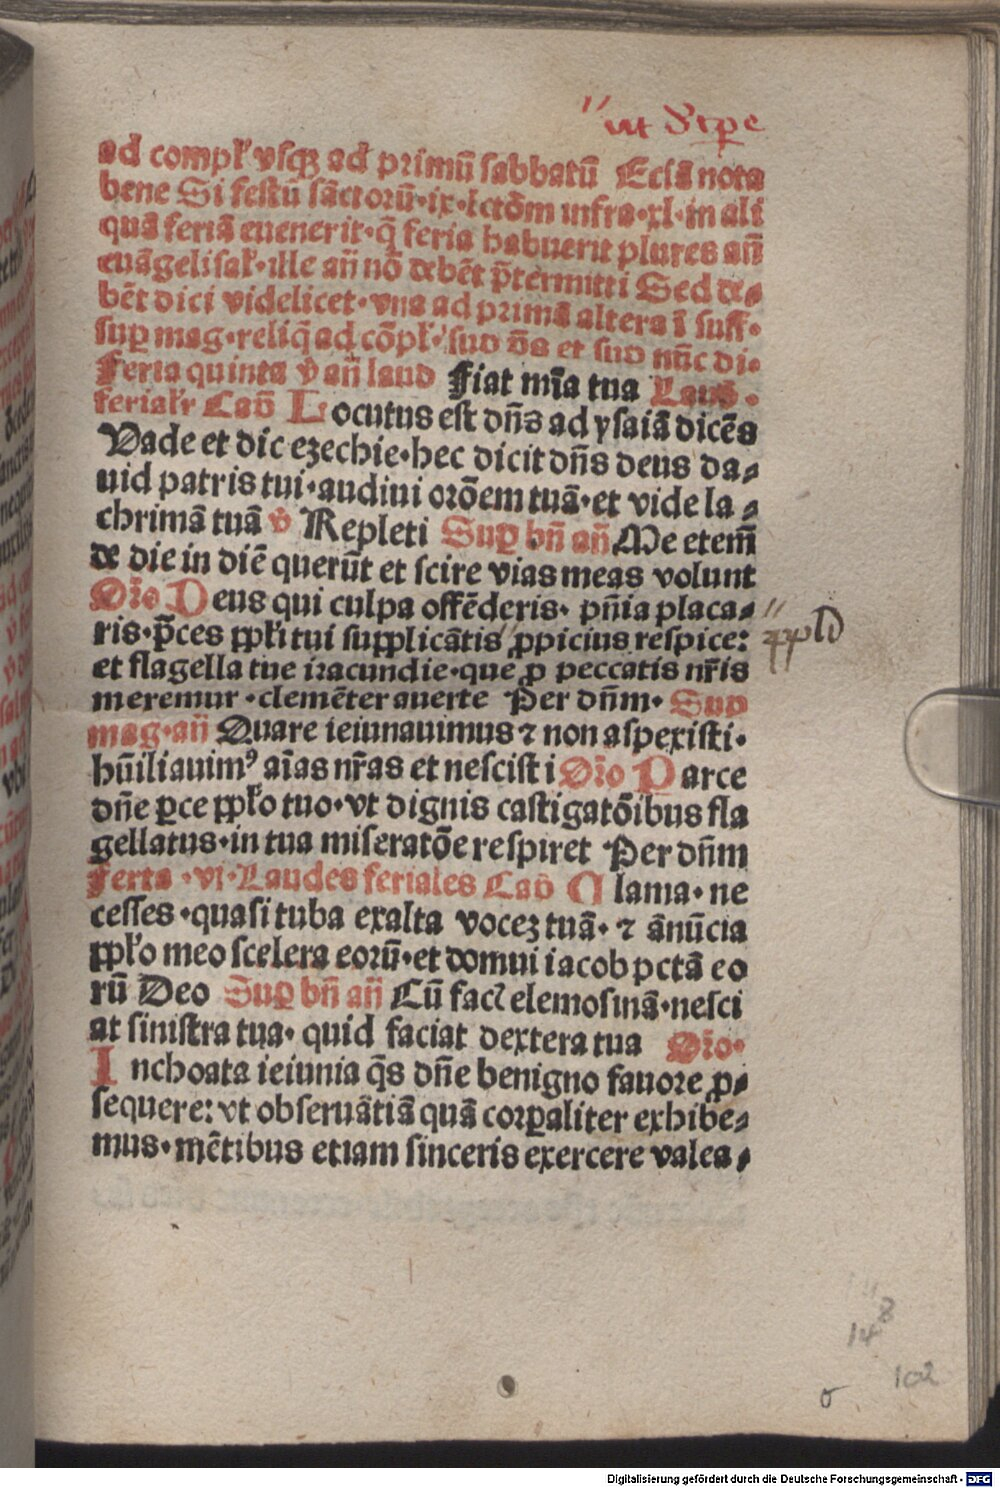 ad compl' vsqꝫ ad primū sabbatū Eciā nota
bene Si festū sāctorū·ix·lctōm infra·xl·in ali
quā feriā euenerit·q̄ feria habuerit plures an̄
euāgelisal'·ille an̄ nō debēt p̄termitti Sed de⸗
bēt dici videlicet·vna ad primā altera ī suff·
sup mag·reliq̄ ad cōpl'·
Feria quinta v̄ an̄ laud Fiat mīa tua Laud·
ferial'r Cap̄ Locutus est dn̄s ad ysaiā dicēs
Vade et dic ezechie·hec dicit dn̄s deus da⸗
uid patris tui·audiui orōem tuā·et vide la⸗
chrimā tuā v̄ Repleti Sup bn̄ an̄ Me etem̄
de die in diē querūt et scire vias meas volunt
Orō Deus qui culpa offēderis· pn̄ia placa⸗
ris·p̄ces ppl'i tui supplicātis ꝓpicius respice:
et flagella tue iracundie·que ꝓ peccatis nr̄is
meremur·clemēter auerte Per dn̄m· Sup
mag·an̄ Quare ieiunauimus ⁊ non aspexisti·
hūiliauimꝰ aīas nr̄as et nescisti Orō Parce
dn̄e ꝑce ppl'o tuo·vt dignis castigatōibus fla
gellatus·in tua miseratōe respiret Per dn̄m
Feria·vi·Laudes feriales Cap̄ Clama·ne
cesses·quasi tuba exalta vocez tuā· ⁊ ānūcia
ppl'o meo scelera eorū·et domui iacob pctā eo
rū Deo Sup bn̄ an̄ Cū facl elemosinā·nesci
at sinistra tua· quid faciat dextera tua Orō·
Inchoata ieiunia q̄s dn̄e benigno fauore ꝓ⸗
sequere: vt obseruātiā quā corꝑaliter exhibe⸗
mus·mētibus etiam sinceris exercere valea⸗
148
102
Digitalisierung gefördert durch die Deutsche Forschungsgemeinschaft - DFG